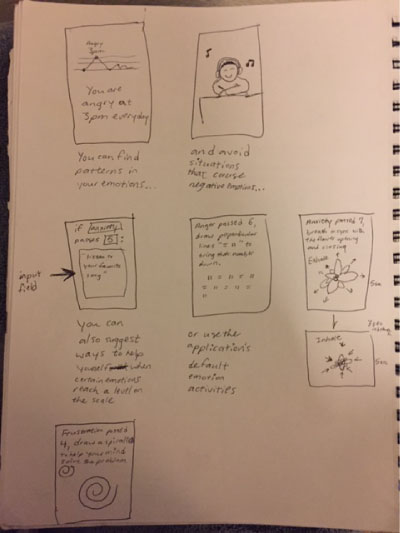 Angry
3pm
You are
angry at
3pm everyday
You can find
patterns in
your emotions...
and avoid
situations
that cause
negative emotions...
if anxiety
passes 5 :
Listen to
your favorite
song
input
field
You can
also suggest
ways to help
yourself when
certain emotions
reach a level on
the scale
Anger passed 6,
draw perpendicular
lines "= 11" to
bring that number
down.
or use the
application's
default
emotion
activities
Anxiety passed 7,
breath in sync with
the flower opening
and closing
Exhale
5sec
Inhale
5sec
Frustration passed
4, draw a spiral
to help your mind
solve the problem